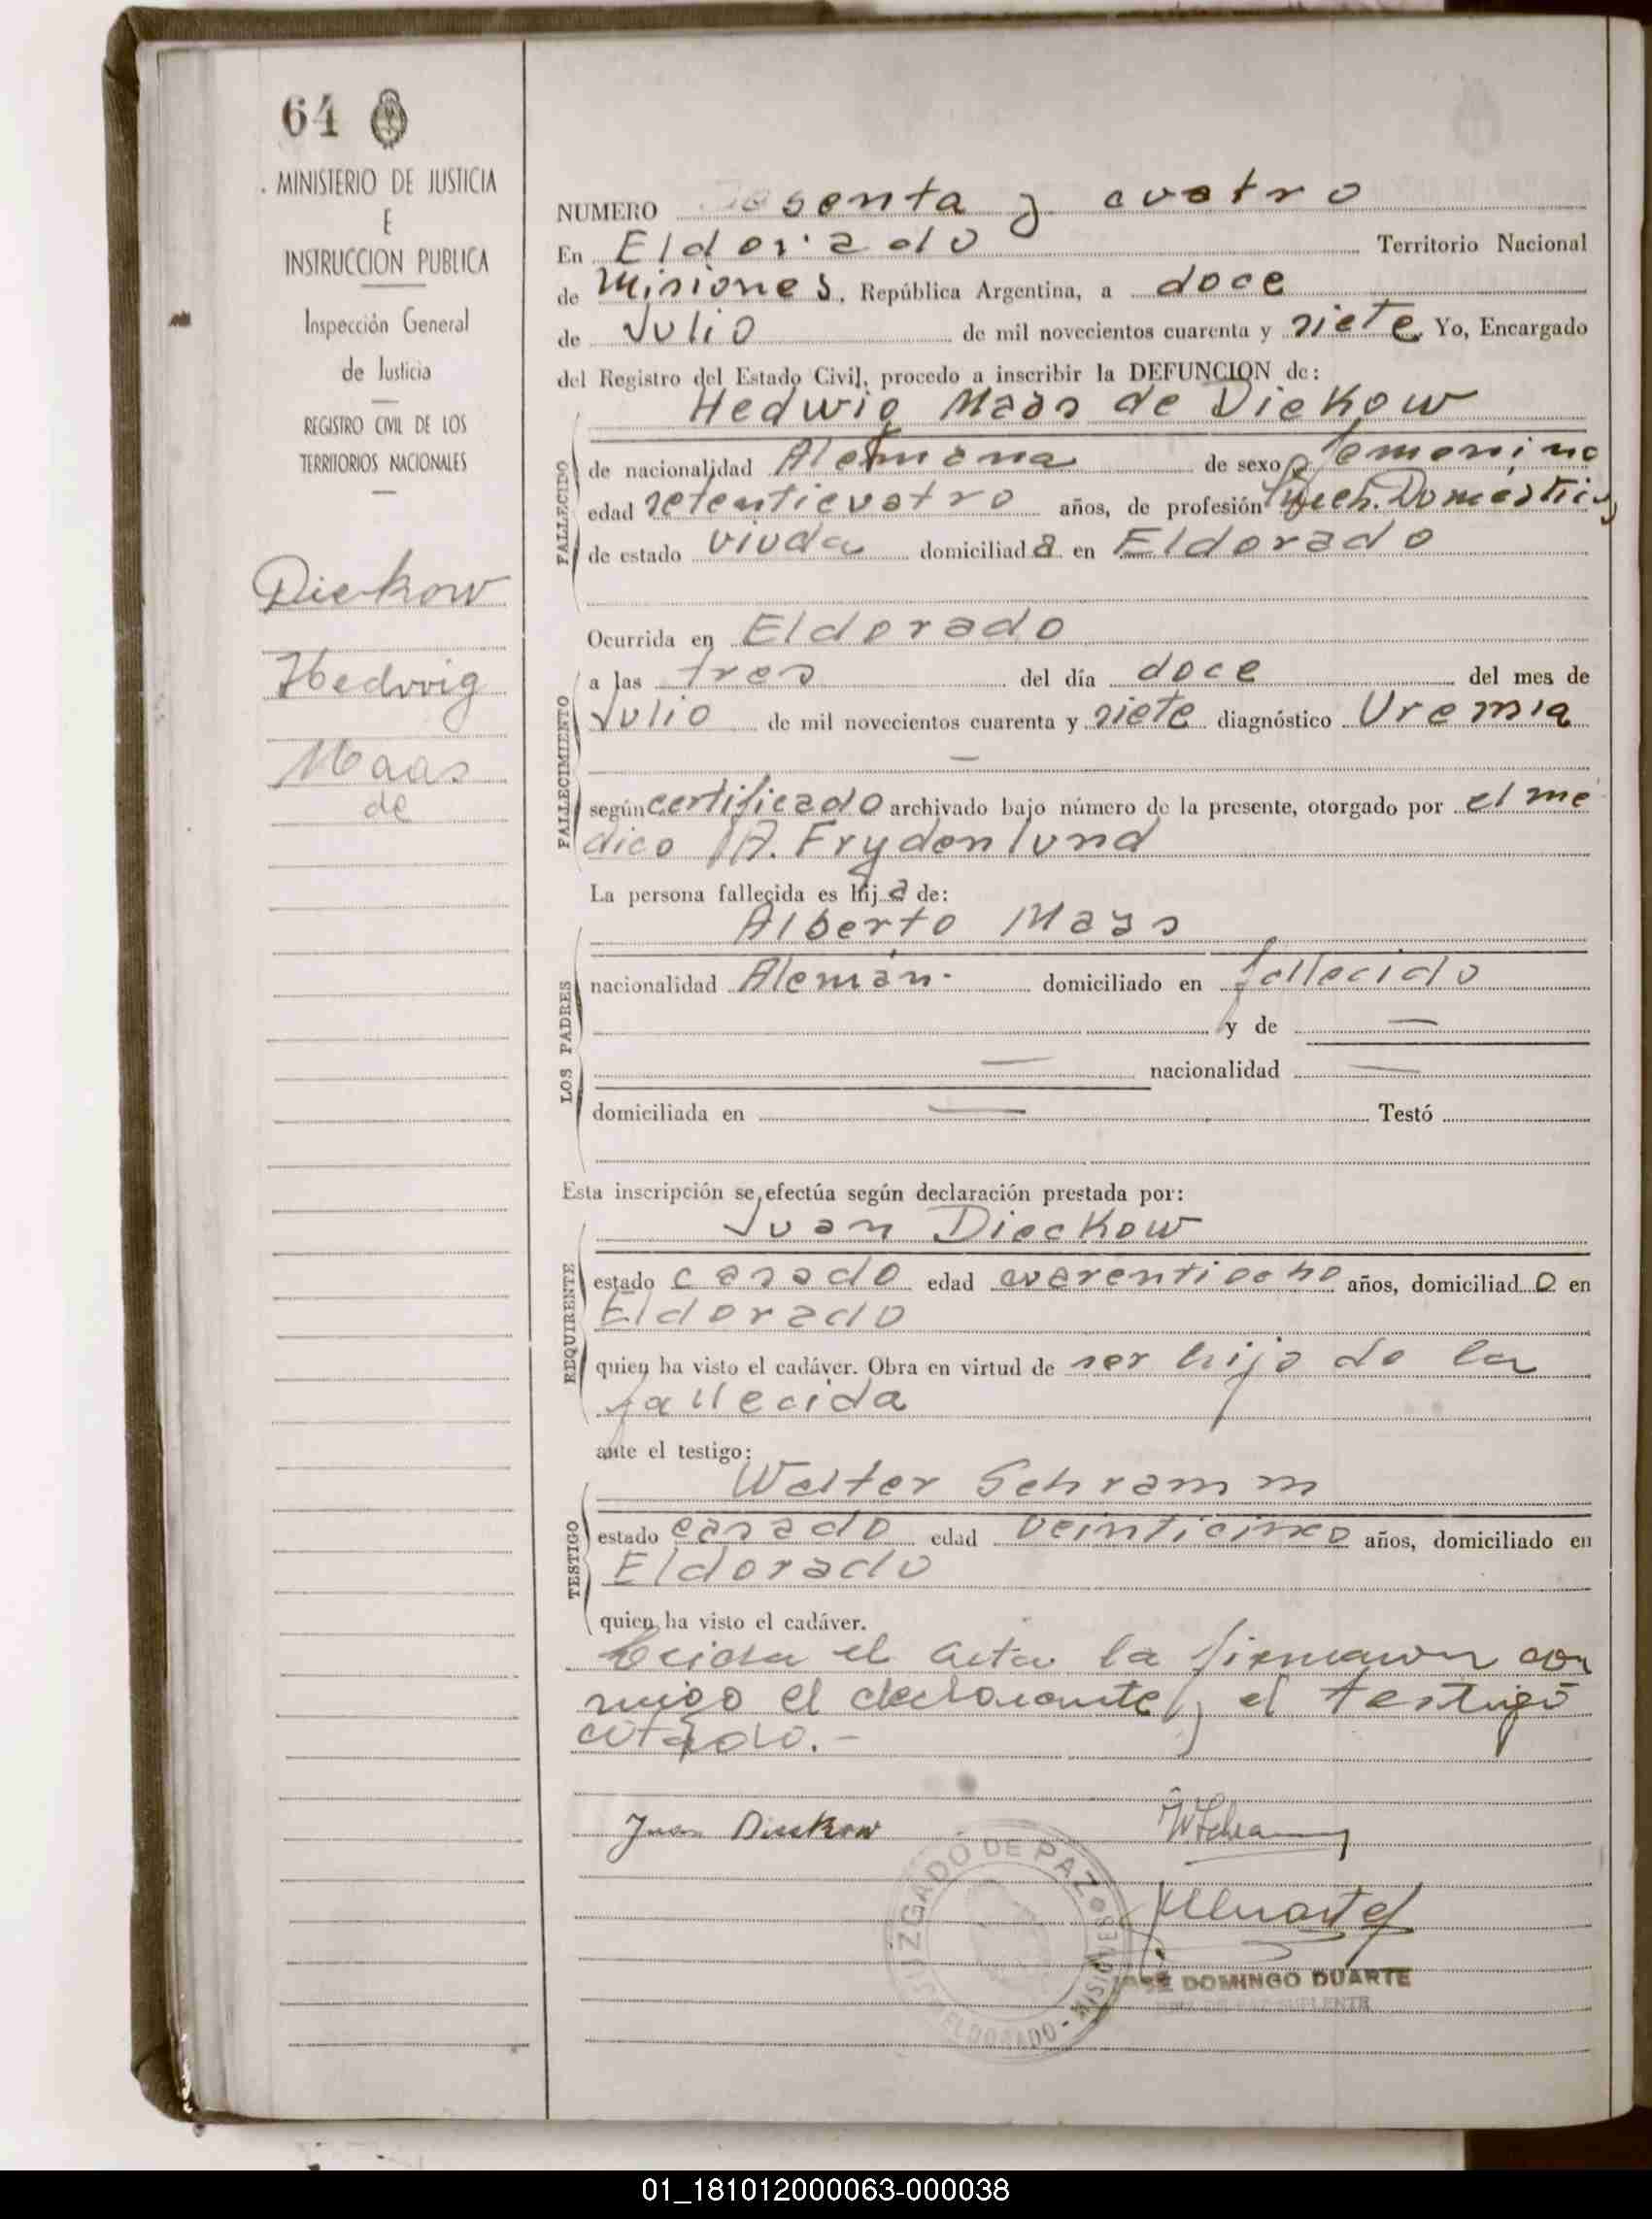 64
MINISTERIO DE JUSTICIA
E
INSTRUCCION PUBLICA
Inspección General
de Justicia
REGISTRO CIVIL DE LOS
TERRITORIOS NACIONALES
Dieckow
Hedwig
Maas
de
NUMERO sesenta y cuatro
En Eldorado Territorio Nacional
de Misiones, República Argentina, a doce
de Julio de mil novecientos cuarenta y siete Yo, Encargado
del Registro del Estado Civil, procedo a inscribir la DEFUNCION de:
Hedwig Maas de Diekow
FALLECIDO
de nacionalidad Alemana de sexo femenino
edad setenticuatro años, de profesión Queh. Domésticos
de estado viuda domiciliad a en Eldorado
Ocurrida en Eldorado
FALLECIMIENTO
a las tres del día doce del mes de
Julio de mil novecientos cuarenta y siete diagnóstico Uremia
según certificado archivado bajo número de la presente, otorgado por el mé
dico A. Frydenlund
La persona fallecida es hij a de:
LOS PADRES
Alberto Maas
nacionalidad Alemán. domiciliado en fallecido
y de —
— nacionalidad —
domiciliada en — Testó
Esta inscripción se efectúa según declaración prestada por:
REQUIRENTE
Juan Dieckow
estado casado edad cuarentiocho años, domiciliad o en
Eldorado
quien ha visto el cadáver. Obra en virtud de ser hijo de la
fallecida
ante el testigo:
TESTIGO
Walter Schramm
estado casado edad veinticinco años, domiciliado en
Eldorado
quien ha visto el cadáver.
Leida el acta la firmaron con
migo el declarante y el testigo
citado.-
Juan Dieckow
WSchramm
JUZGADO DE PAZ
ELDORADO - MISIONES
JOSE DOMINGO DUARTE
SUPLENTE
01_181012000063-000038